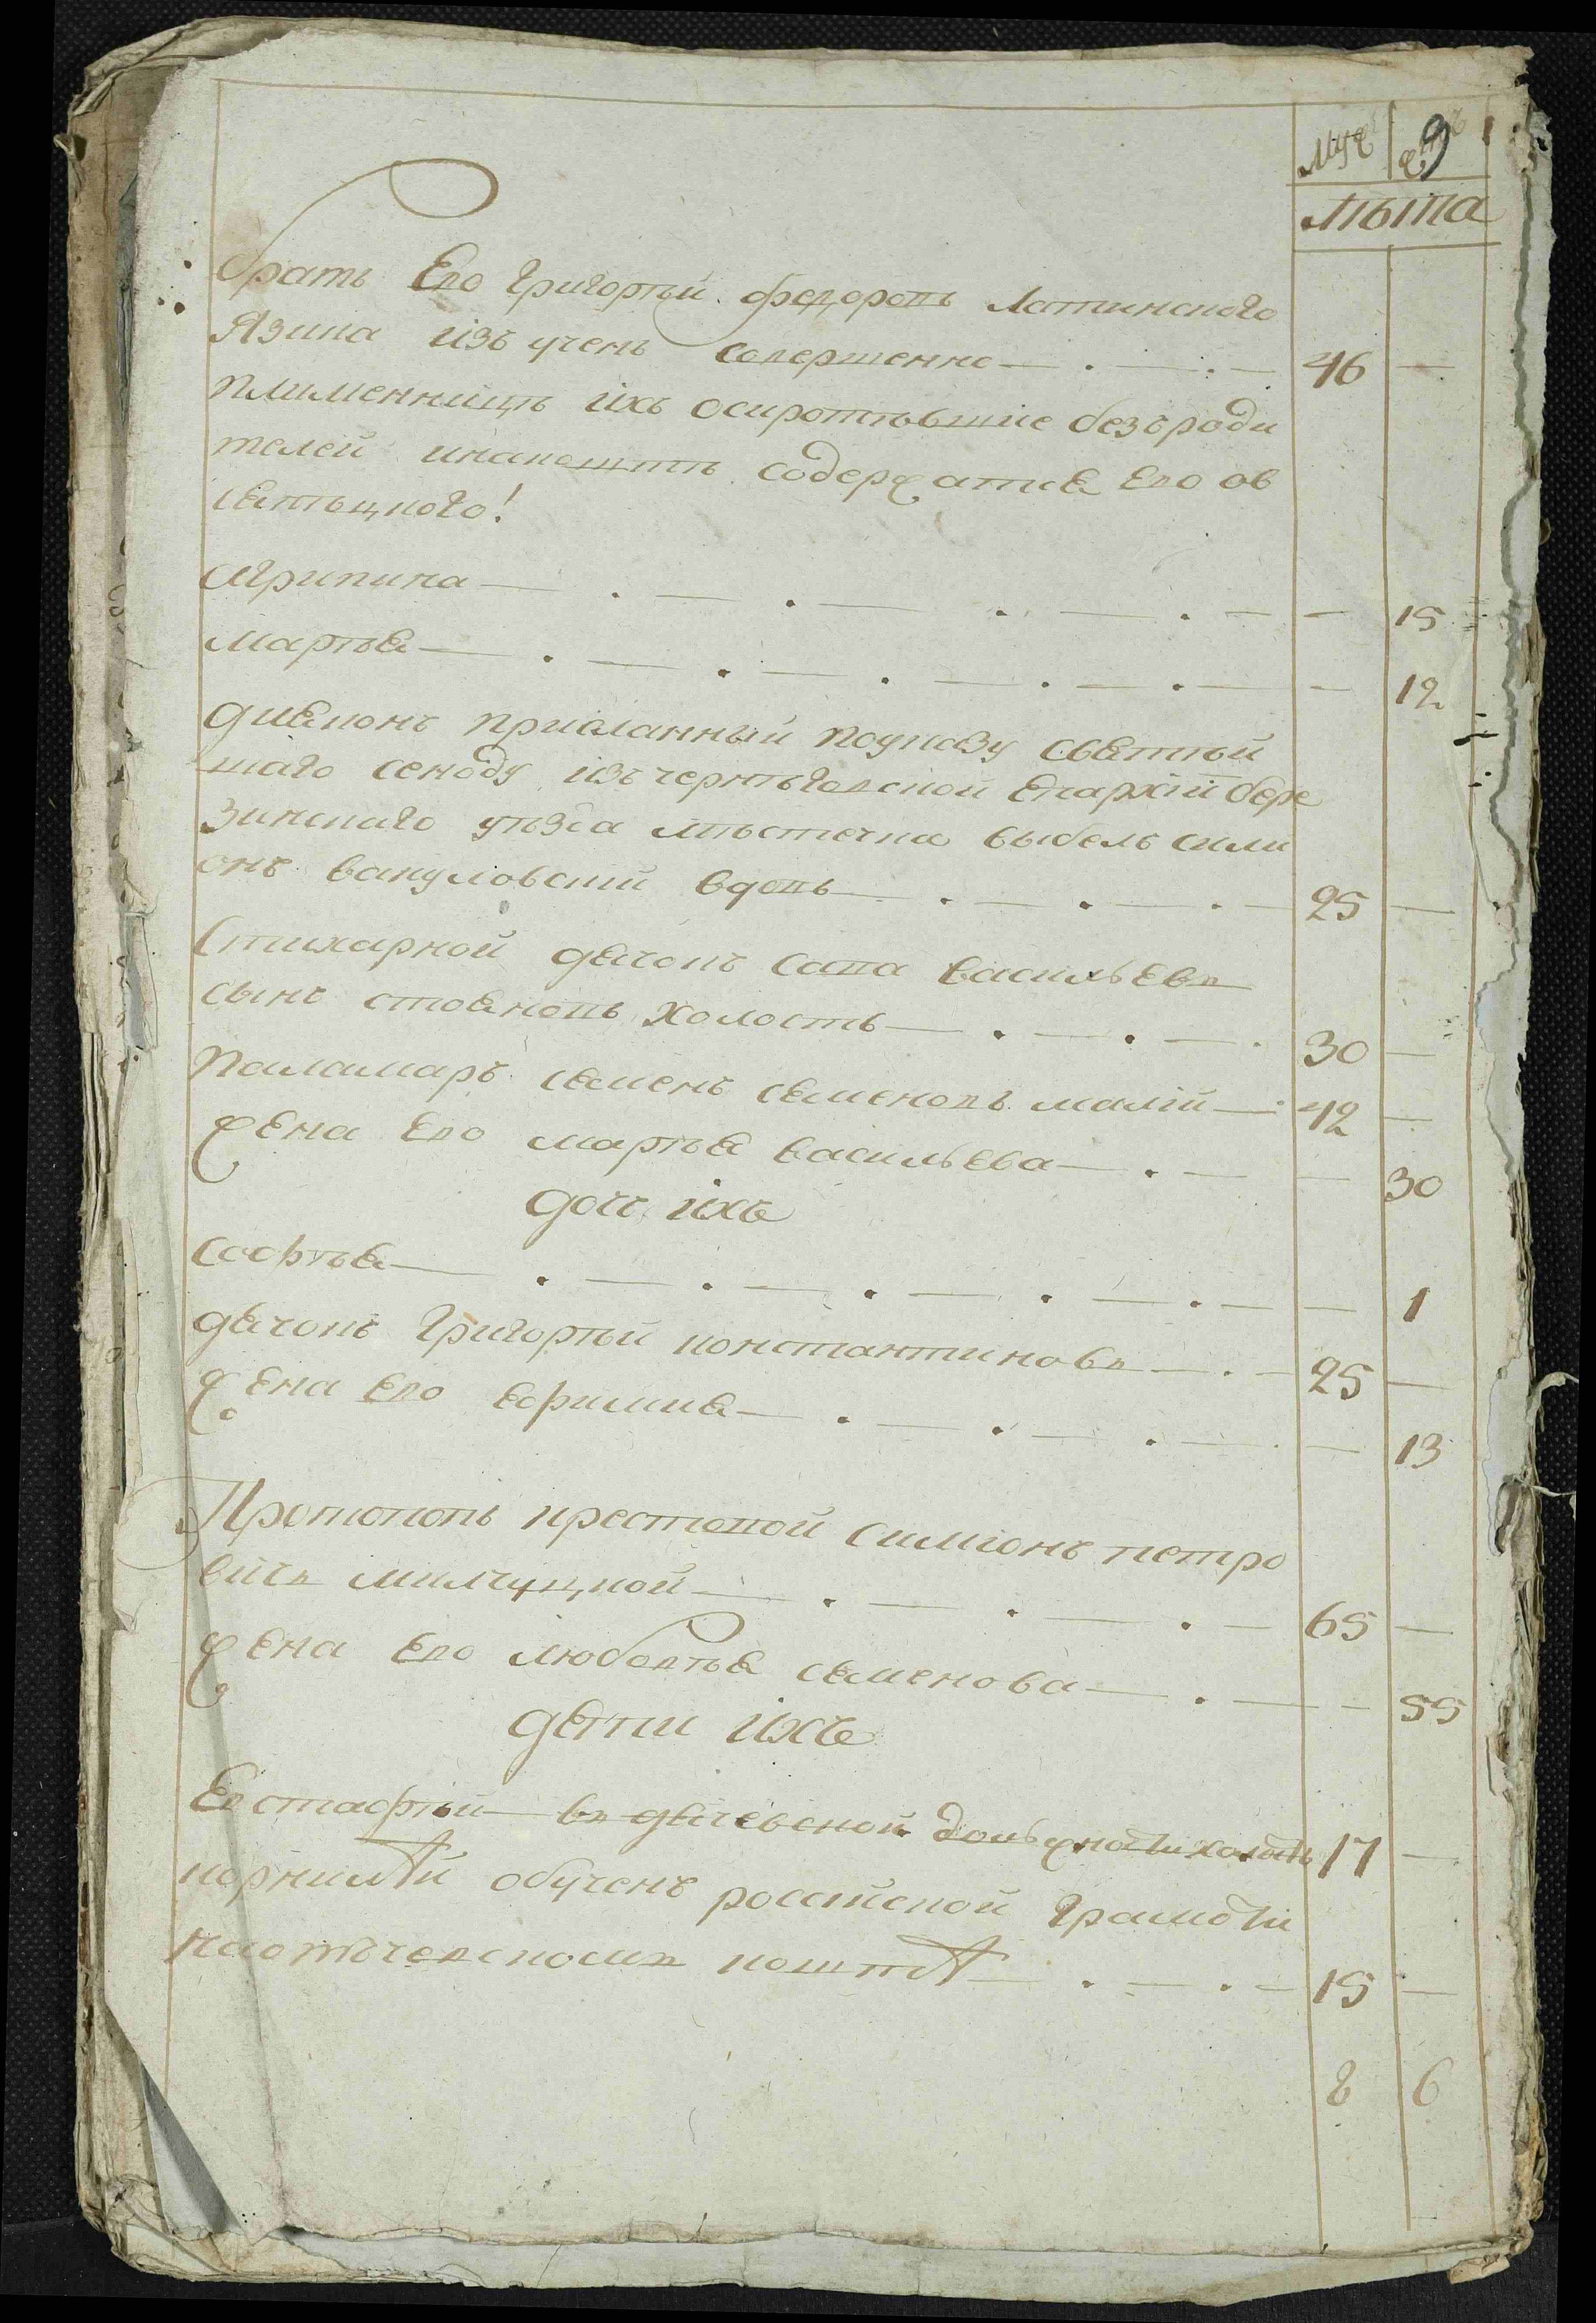 муж женс 9
лѣта
братъ Его Григорѣй федоровъ латинского
Языка изъученъ совершенно 46 —
племенницы ихъ осиротевшие безъроди
телей инакоштѣ содержатца Его ов
сяницкого!
Агрипина — 15
Марѣя — 12
дияконъ присланный поуказу святѣй
шаго сеноду изъчернѣговской Епархій бере
зинского уѣзда мѣстечка выбель сими
онъ вакуловский вдовъ 25 —
Стихарной дячокъ сава васильевъ
сынъ стояновъ холостъ 30 —
паламаръ семенъ семеновъ малій 42 —
жена Его марѣя васильева — 30
доч ихъ
софѣя — 1
дячокъ Григорѣй константиновъ 25 —
жена Его Ефимия — 13
Протопопъ крестовой симионъ петро
вичъ 65 —
жена Его любовѣя семенова — 55
дети ихъ
Евстафѣй въ дячевской должности холостъ 17 —
корнилѣй обученъ российской грамоти
наотъчевскомъ коштѣ 15 —
8 6